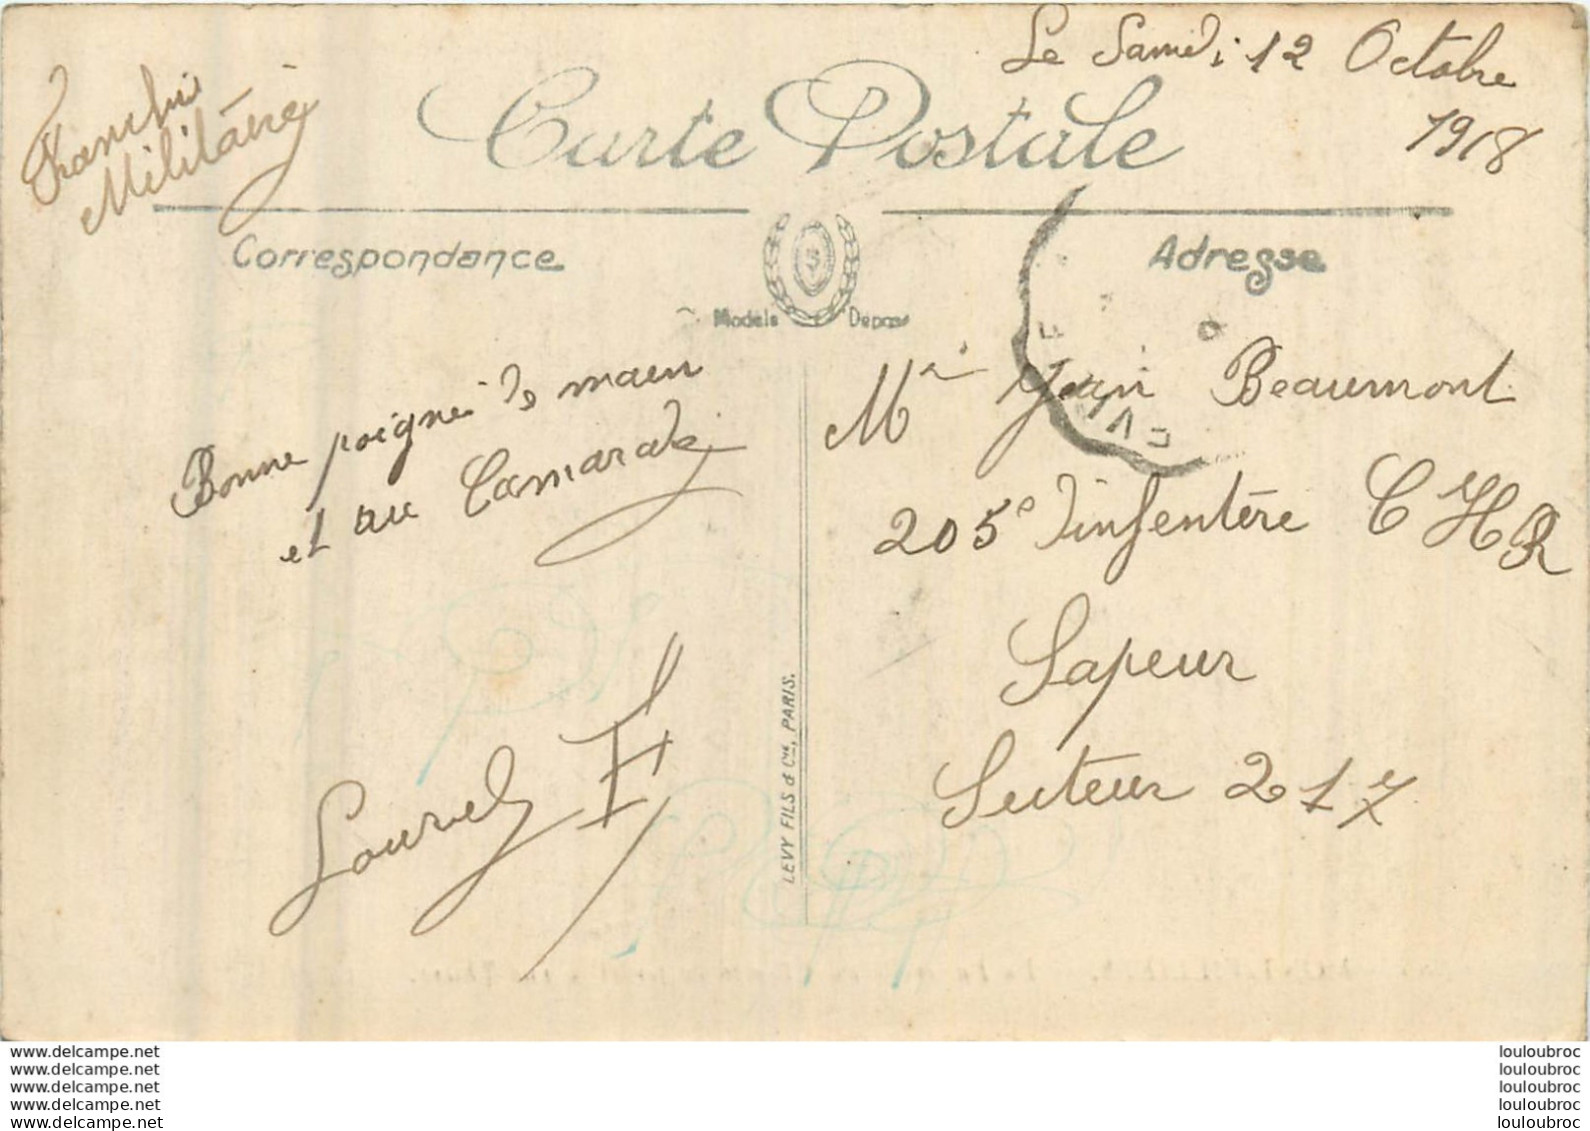 Le Samedi 12 Octobre
1918
Franchise
Militaire
Carte Postale
Correspondance
Adresse
Modèle Déposé
Bonne poigné de main
et au Camarade
Louvel F
LEVY FILS & Cie, PARIS.
Mr Jean Beaumont
205e d'infentère C H R
Sapeur
Secteur 217
www.delcampe.net
www.delcampe.net
www.delcampe.net
www.delcampe.net
www.delcampe.net
louloubroc
louloubroc
louloubroc
louloubroc
louloubroc